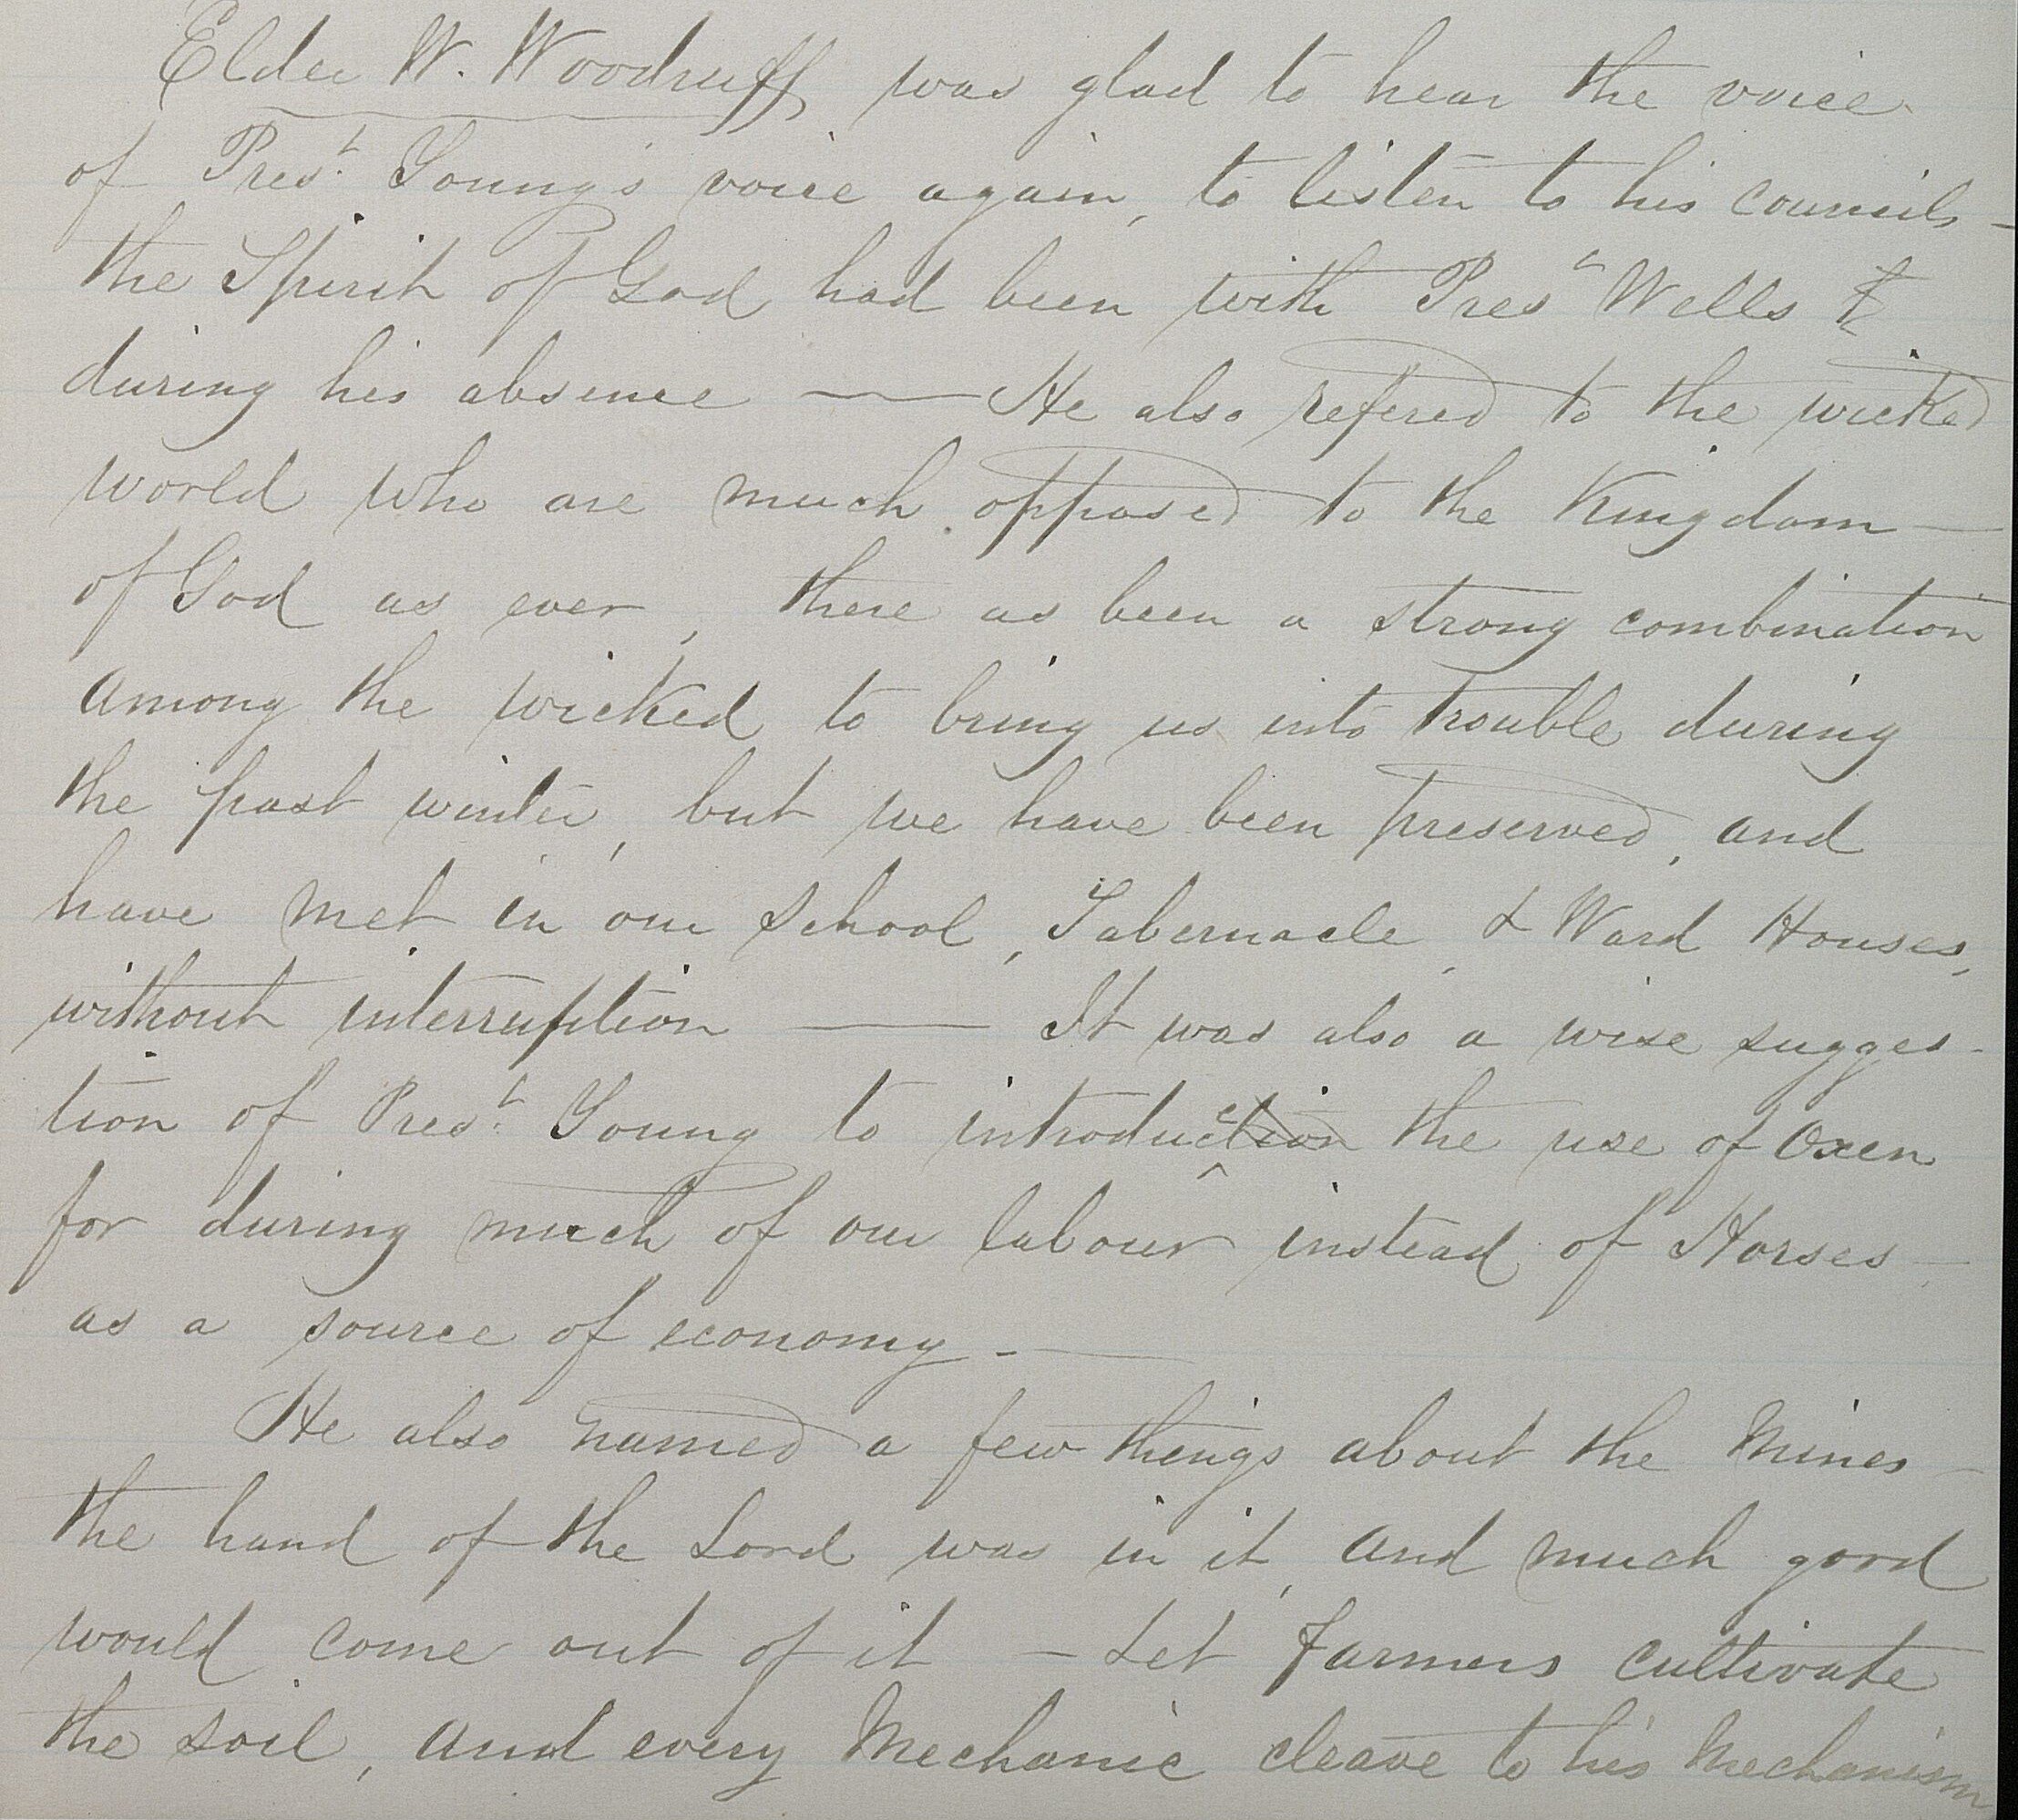 Elder W. Woodruff was glad to hear the voice
of Prest. Young's voice again, to listen to his councils -
the Spirit of God had been with Prest Wells &
during his absence — He also refered to the wicked
world who are much opposed to the Kingdom —
of God as ever, there as been a strong combination
among the wicked to bring us into trouble during
the past winter, but we have been preserved, and
have met in our school, Tabernacle, & Ward Houses,
without interruption — It was also a wise sugges-
tion of Prest. Young to introduce the use of Oxen
for during much of our labour instead of Horses —
as a source of economy. —
He also named a few things about the Mines —
the hand of the Lord was in it, and much good
would come out of it — Let farmers cultivate
the soil, and every Mechanic cleave to his Mechanism